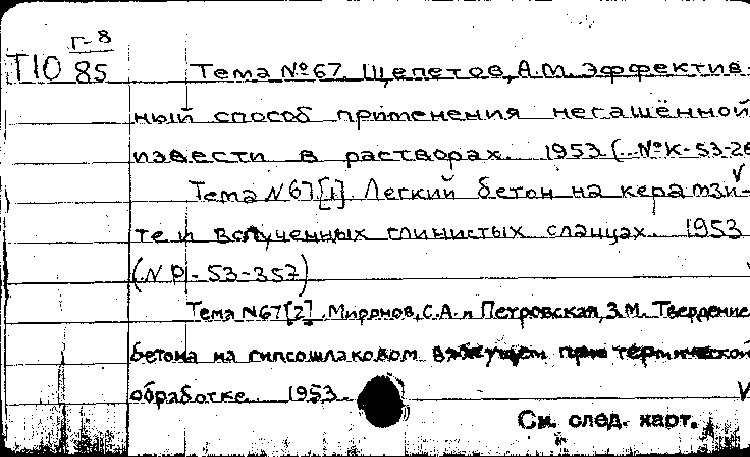 Г-8
Т10 85
Тема №67. Щепетов, А.М. Эффектив-
ный способ применения негашённой
извести в растворах. 1953 (...№К-53-26
Тема №67[1]. Легкий бетон на керамзи-
те и вспученных глинистых сланцах. 1953
(№ Р1-53-357)
Тема №67[2]. Миронов, С.А. и Петровская, З.М. Твердение
бетона на гипсошлаковом вяжущем при термической
обработке. 1953.
См. след. карт.